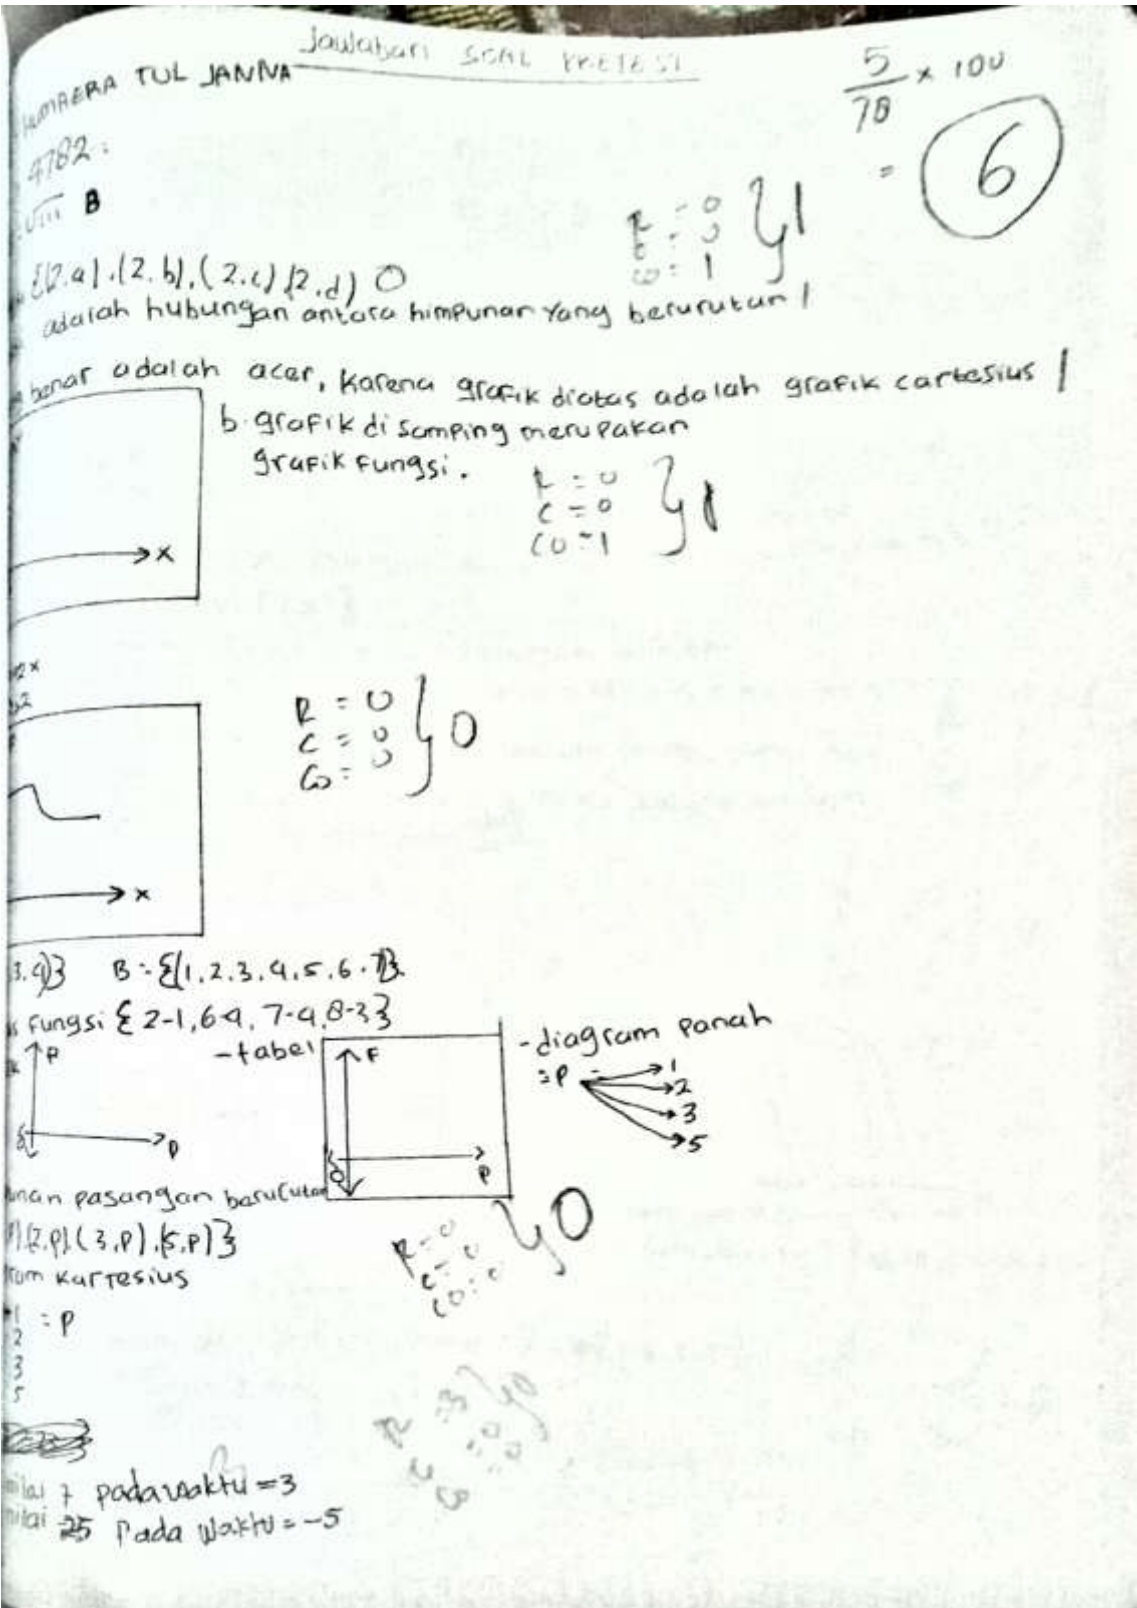 Jawaban SOAL PRETEST
HUMAERA TUL JANNA
5/78 x 100
= 6
4782
VIII B
R = 0
C = 0
CO = 1
} 1
{(2.a).(2.b),(2.c)(2.d) 0
adalah hubungan antara himpunan yang berurutan 1
benar adalah acer, karena grafik diatas adalah grafik cartesius 1
b. grafik di samping merupakan
grafik fungsi.
R = 0
C = 0
CO = 1
} 1
x
R = 0
C = 0
CO = 0
} 0
x
3.4)} B = {(1.2.3.4.5.6.7)}.
fungsi {2-1,6-4,7-4,8-3}
P
P
-tabel
F
P
-diagram panah
=P
1
2
3
5
unan pasangan berurutan
P).(2.P).(3,P).(5,P)}
ram kartesius
1 = P
2
3
5
R = 0
C = 0
CO = 0
} 0
nilai 7 pada waktu = 3
nilai 25 Pada Waktu = -5